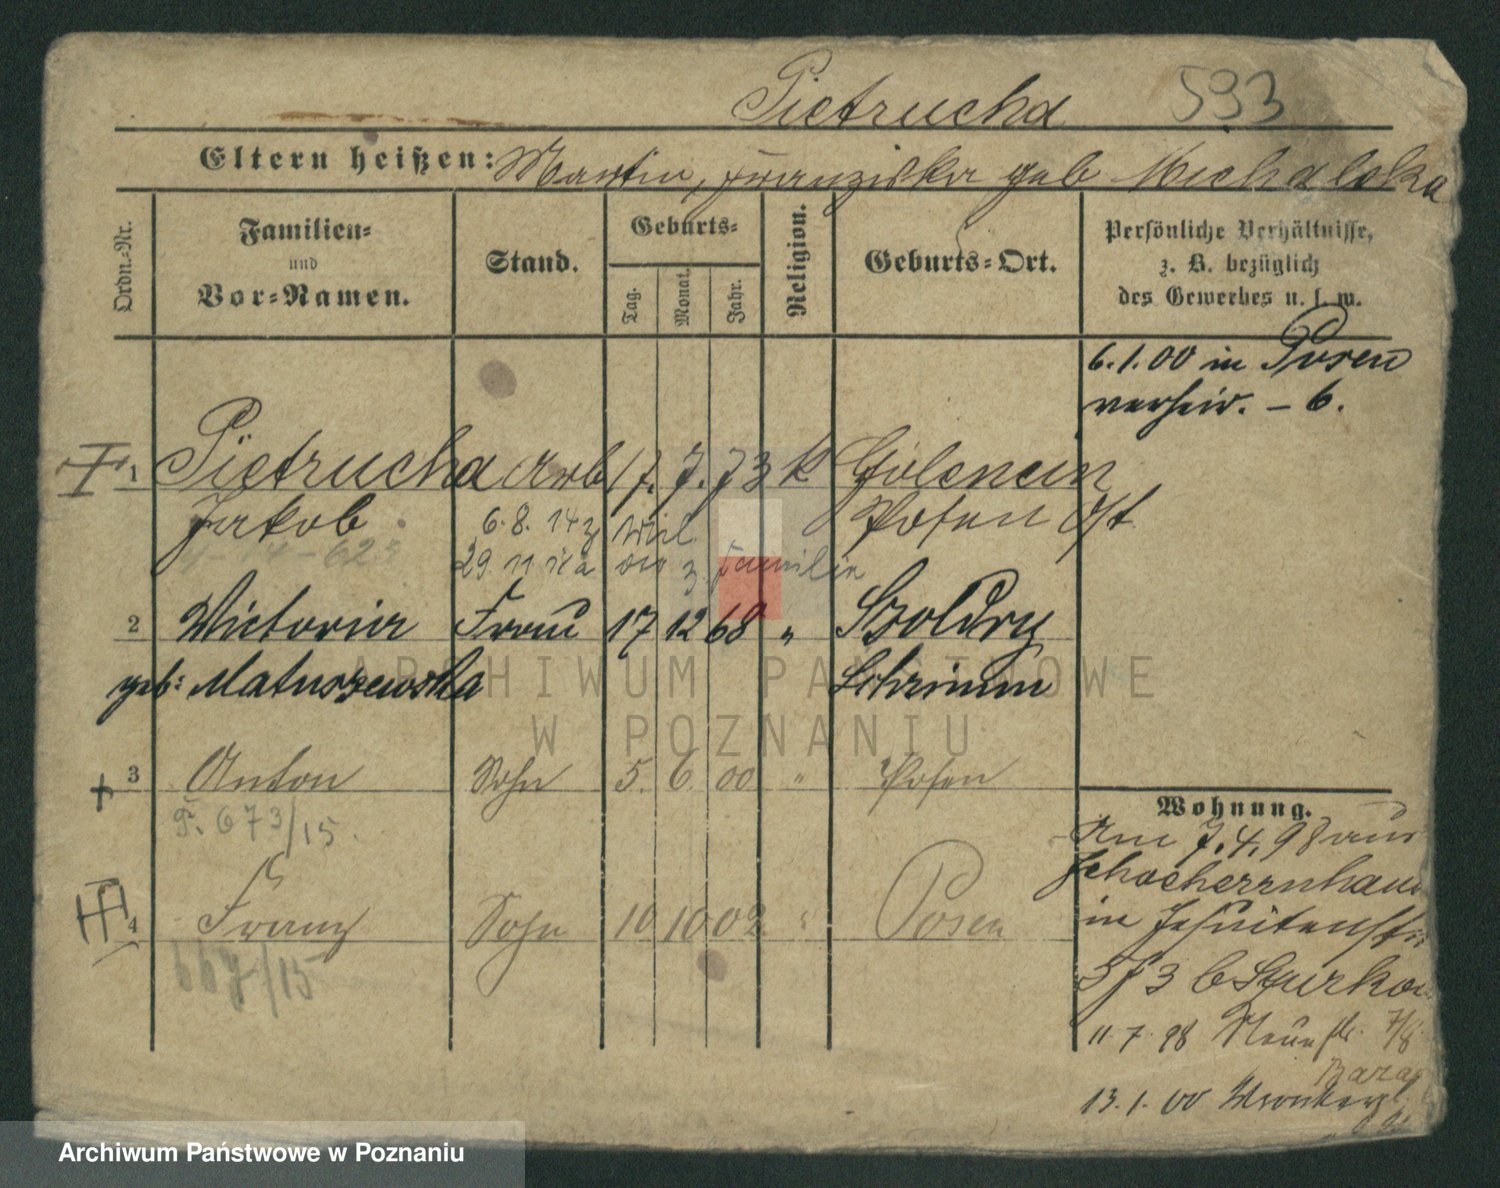 Pietrucha 593
Eltern heißen: Martin, Franziska geb Michalska
Ordn.-Nr.
Familien-
und
Vor-Namen.
Stand.
Geburts-
Tag.
Monat.
Jahr.
Religion.
Geburts-Ort.
Persönliche Verhältnisse,
z. B. bezüglich
des Gewerbes u. s. w.
6.1.00 in Posen
verheir. – 6.
1 Pietrucha Arb 17. 7. 73 k Golencin
Jakob Posen Ost
6. 8. 14 z Mil
29. 11 z. Familie
2 Victoria Frau 17 12 68 " Szoldry
geb: Matuszewska Schrimm
3 Anton Sohn 5. 6. 00 " Posen
F. 673/15.
4 Franz Sohn 10 10 02 " Posen
667/15
Wohnung.
Am 7.4.98 aus
in Jesuitenstr
573 b
11. 7. 98 7/8
13. 1. 00
ARCHIWUM PAŃSTWOWE
W POZNANIU
Archiwum Państwowe w Poznaniu